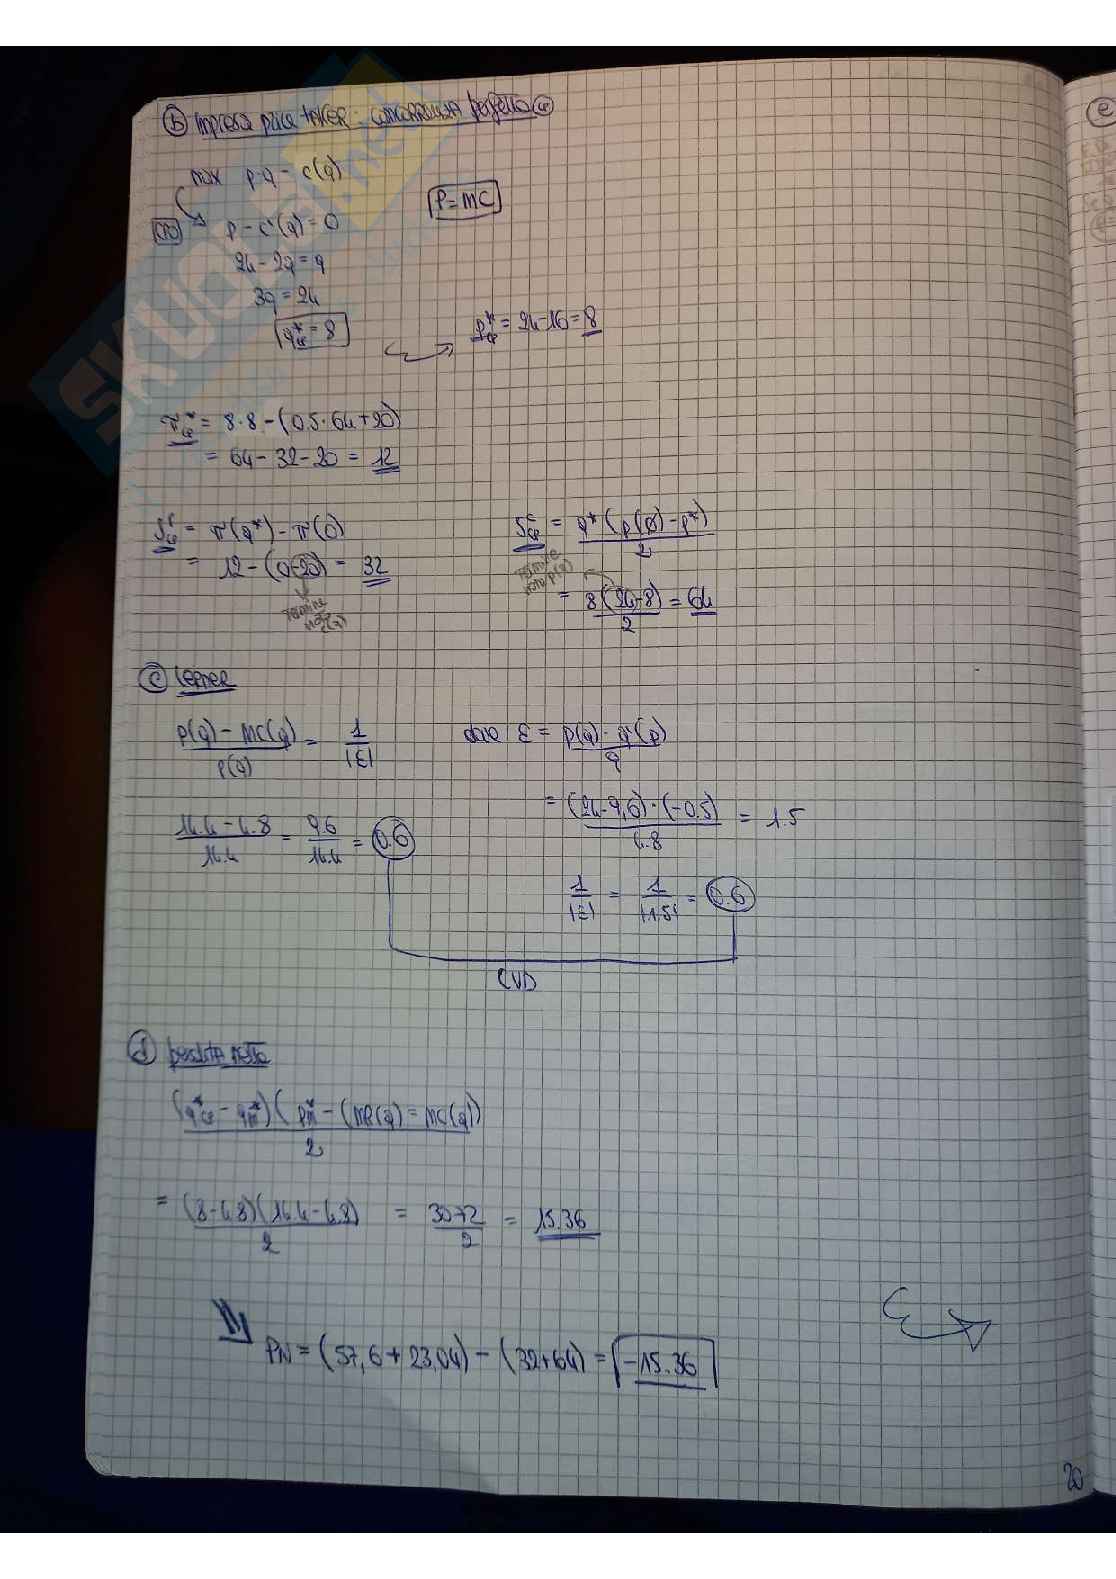 b) Impresa price taker: concorrenza perfetta (CP)
max p·q - c(q)
P = MC
CPO p - c'(q) = 0
24 - 2q = q
3q = 24
q*cp = 8
p*cp = 24 - 16 = 8
π*cp = 8·8 - (0.5·64 + 20)
= 64 - 32 - 20 = 12
= π(q*) - π(0)
= 12 - (0-20) = 32
termine noto c(q)
= q*(p(0) - p*) / 2
termine noto p(q)
= 8(24-8) / 2 = 64
c) Lerner
p(q) - MC(q) / p(q) = 1 / |ε|
dove ε = p(q)·q'(p) / q
14.4 - 4.8 / 14.4 = 9.6 / 14.4 = 0.6
= (24-9,6)·(-0.5) / 4.8 = 1.5
1 / |ε| = 1 / |1.5| = 0.6
CVD
d) perdita netta
(q*cp - q*m)(p*m - (MR(q) = MC(q)) / 2
= (8-4.8)(14.4-4.8) / 2 = 30.72 / 2 = 15.36
PN = (57,6 + 23,04) - (32+64) = -15.36
20
e
SKUOLA.net